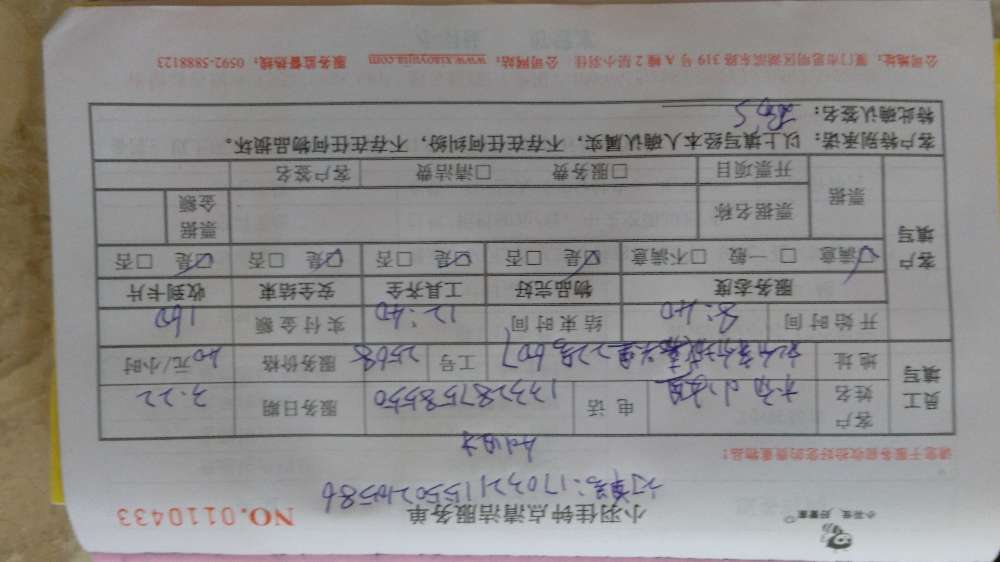 小羽佳 好管家
小羽佳钟点清洁服务单
NO.0110433
订单号:170321155021058b
请您于服务前收拾好您的贵重物品!
员工填写
客户姓名
电话 13328758550
服务日期 3.22
地址
607
工号 2568
服务价格 40 元/小时
开始时间 8:40
结束时间 12:40
实付金额 160
客户填写
服务态度 物品完好 工具齐全 安全结束 收到卡片
☑满意 □一般 □不满意 ☑是 □否 ☑是 □否 ☑是 □否 ☑是 □否
票据
票据名称 票据金额
开票项目 □服务费 □清洁费 客户签名
客户特别承诺:以上填写经本人确认属实,不存在任何纠纷,不存在任何物品损坏。
特此确认签名:
公司地址:厦门市思明区湖滨东路319号A幢2层小羽佳 公司网站:www.xiaoyujia.com 服务监督热线:0592-5888123